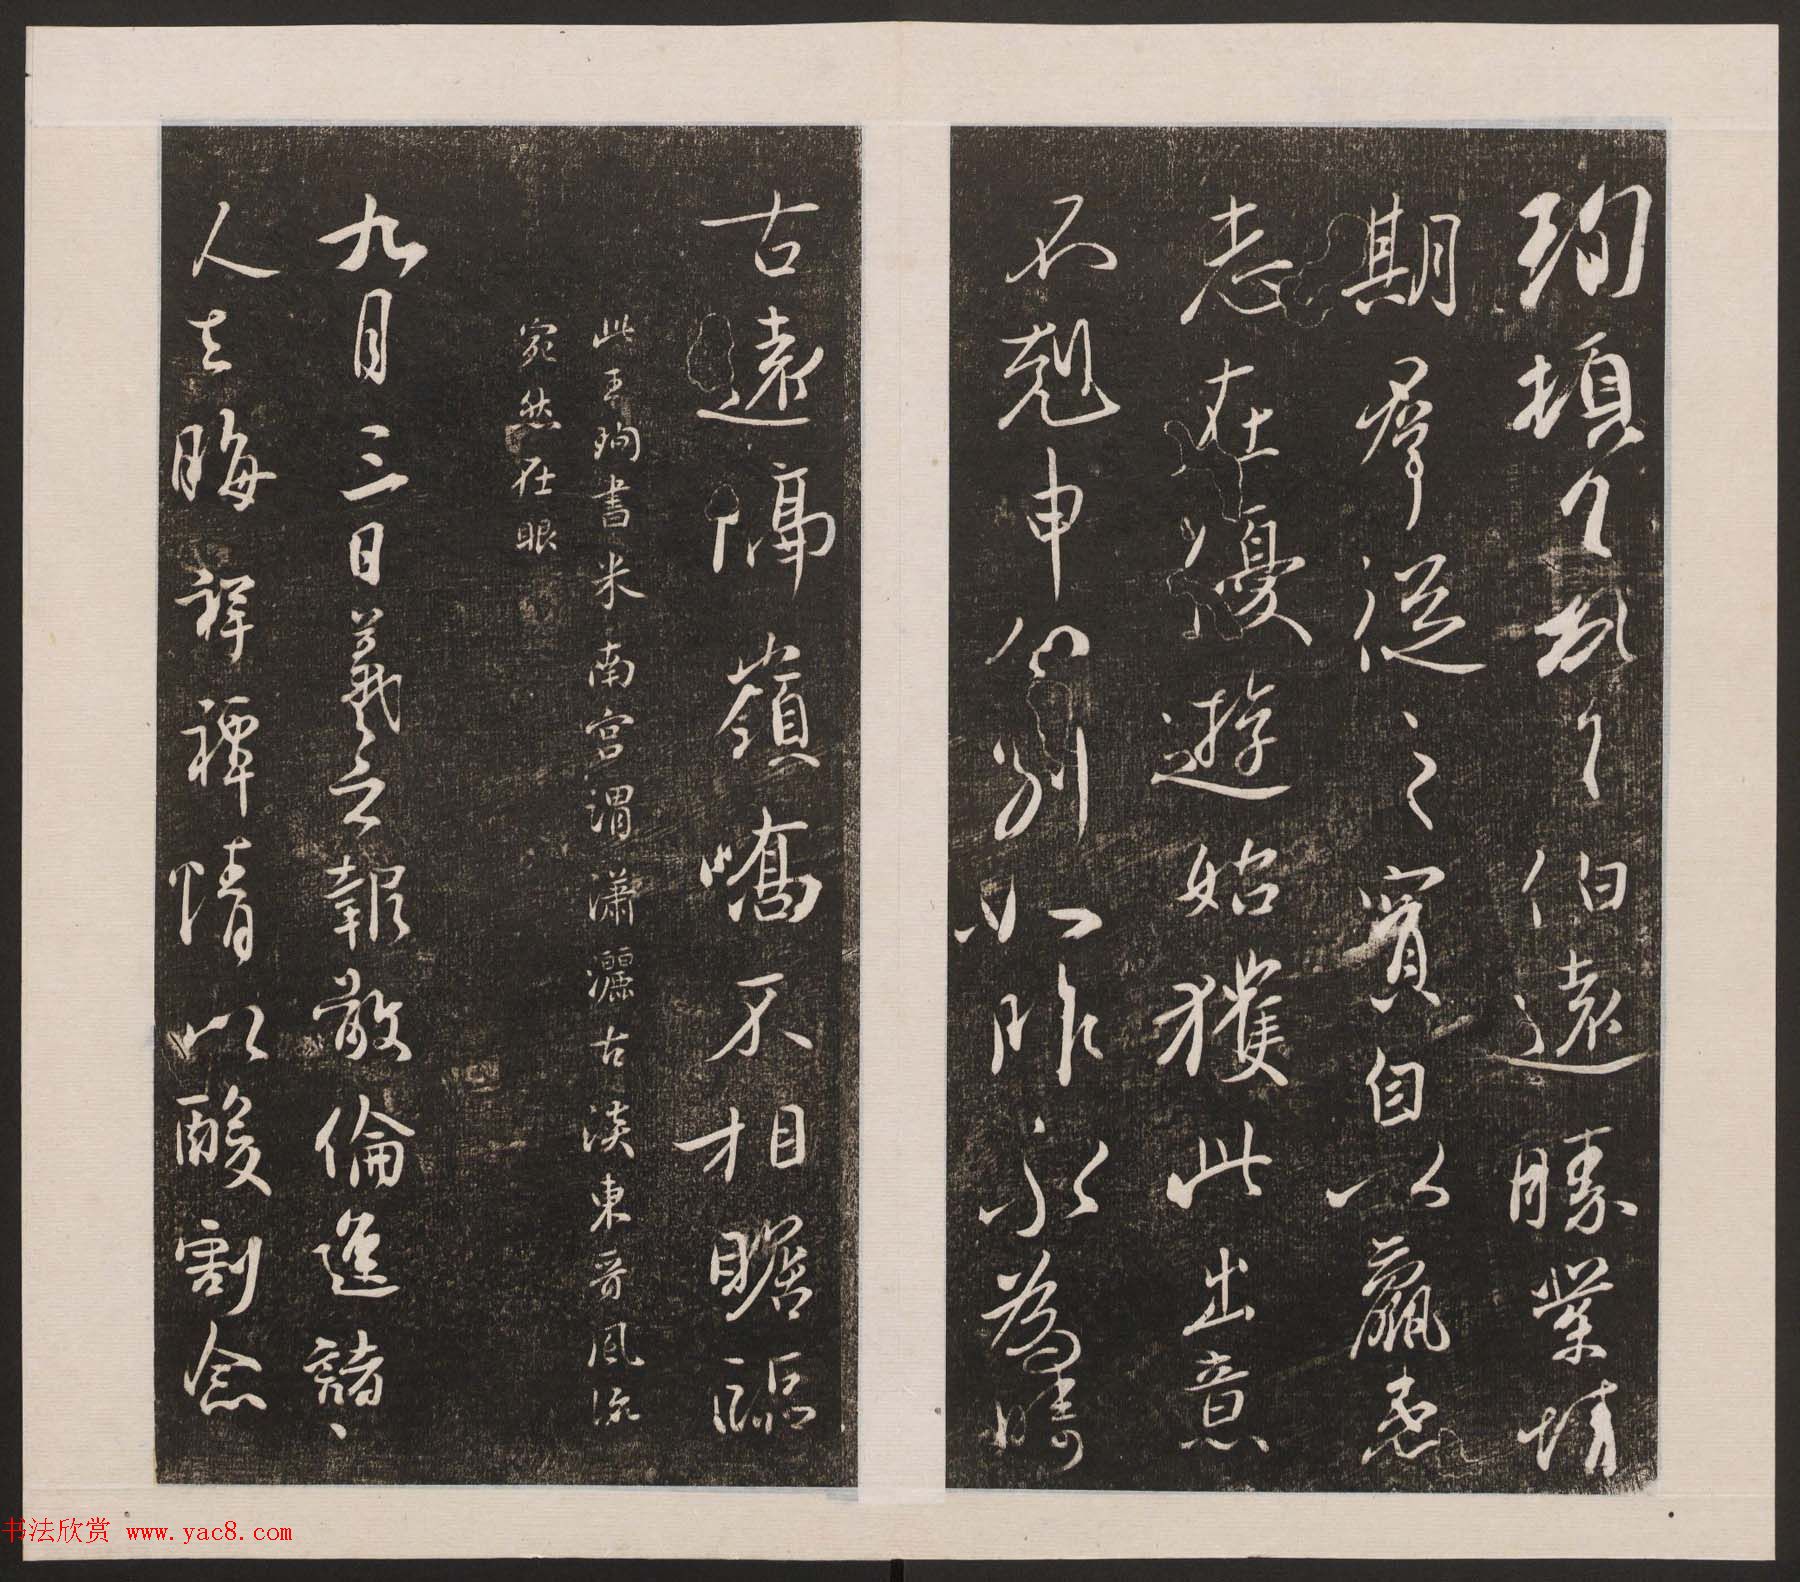 珣頓首頓首伯遠勝業情
期群從之寶自以羸患
志在優遊始獲此出意
不剋申分別如昨永為疇
古遠隔嶺嶠不相瞻臨
此王珣書米南宮謂瀟灑古淡東晉風流
宛然在眼
九月三日羲之報敬倫遮諸
人去晦祥禫情以酸割念
书法欣赏 www.yac8.com